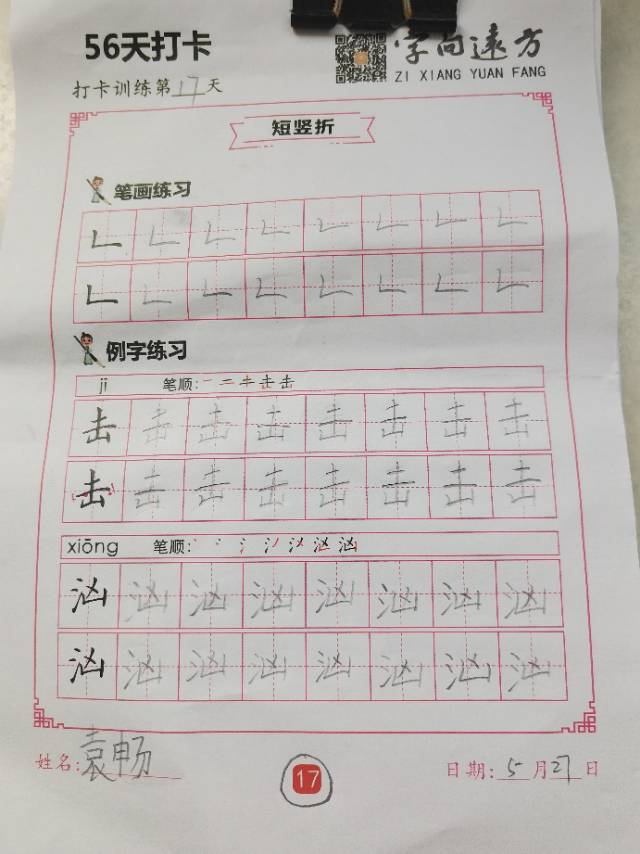 56天打卡
字向远方
ZI XIANG YUAN FANG
打卡训练第17天
短竖折
笔画练习
𠃊𠃊𠃊𠃊𠃊𠃊𠃊𠃊
𠃊𠃊𠃊𠃊𠃊𠃊𠃊𠃊
例字练习
jī 笔顺:一二キ击击
击击击击击击击击
击击击击击击击击
xiōng 笔顺:
汹汹汹汹汹汹汹汹
汹汹汹汹汹汹汹汹
姓名:袁畅
17
日期:5月27日